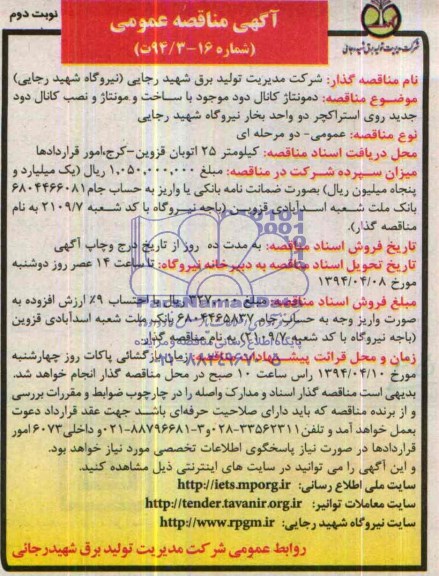 نوبت دوم
آگهی مناقصه عمومی
(شماره ۱۶-۹۴/۳ت)
شرکت مدیریت تولید برق شهید رجایی
نام مناقصه گذار: شرکت مدیریت تولید برق شهید رجایی (نیروگاه شهید رجایی)
موضوع مناقصه: دمونتاژ کانال دود موجود با ساخت و مونتاژ و نصب کانال دود
جدید روی استراکچر دو واحد بخار نیروگاه شهید رجایی
نوع مناقصه: عمومی- دو مرحله ای
محل دریافت اسناد مناقصه: کیلومتر ۲۵ اتوبان قزوین-کرج،امور قراردادها
میزان سپرده شرکت در مناقصه: مبلغ ۱,۰۵۰,۰۰۰,۰۰۰ ریال (یک میلیارد و
پنجاه میلیون ریال) بصورت ضمانت نامه بانکی یا واریز به حساب جام ۶۸۰۴۴۶۶۰۸۱
بانک ملت شعبه اسدآبادی قزوین (باجه نیروگاه با کد شعبه ۲۱۰۹/۷ به نام
مناقصه گذار).
تاریخ فروش اسناد مناقصه: به مدت ده روز از تاریخ درج وچاپ آگهی
تاریخ تحویل اسناد مناقصه به دبیرخانه نیروگاه: تا ساعت ۱۴ عصر روز دوشنبه
مورخ ۱۳۹۴/۰۴/۰۸
مبلغ فروش اسناد مناقصه: مبلغ ریال با احتساب ۹٪ ارزش افزوده به
صورت واریز وجه به حساب جام ۶۸۰۴۴۶۵۸۳۷ بانک ملت شعبه اسدآبادی قزوین
(باجه نیروگاه با کد شعبه ۲۱۰۹/۷) به نام مناقصه گذار
زمان و محل قرائت پیشنهادات مناقصه: زمان بازگشائی پاکات روز چهارشنبه
مورخ ۱۳۹۴/۰۴/۱۰ راس ساعت ۱۰ صبح در محل مناقصه گذار انجام خواهد شد.
بدیهی است مناقصه گذار اسناد و مدارک واصله را در چارچوب ضوابط و مقررات بررسی
و از برنده مناقصه که باید دارای صلاحیت حرفه‌ای باشد جهت عقد قرارداد دعوت
بعمل خواهد آمد و تلفن ۳۳۵۶۲۳۱۱-۰۲۸و۳-۸۸۷۹۶۶۸۱-۰۲۱ و داخلی۶۰۷۳ امور
قراردادها در صورت نیاز پاسخگوی اطلاعات تخصصی مورد نیاز خواهد بود.
و این آگهی را می توانید در سایت های اینترنتی ذیل مشاهده کنید.
سایت ملی اطلاع رسانی: http://iets.mporg.ir
سایت معاملات توانیر: http://tender.tavanir.org.ir
سایت نیروگاه شهید رجایی: http://www.rpgm.ir
روابط عمومی شرکت مدیریت تولید برق شهیدرجائی